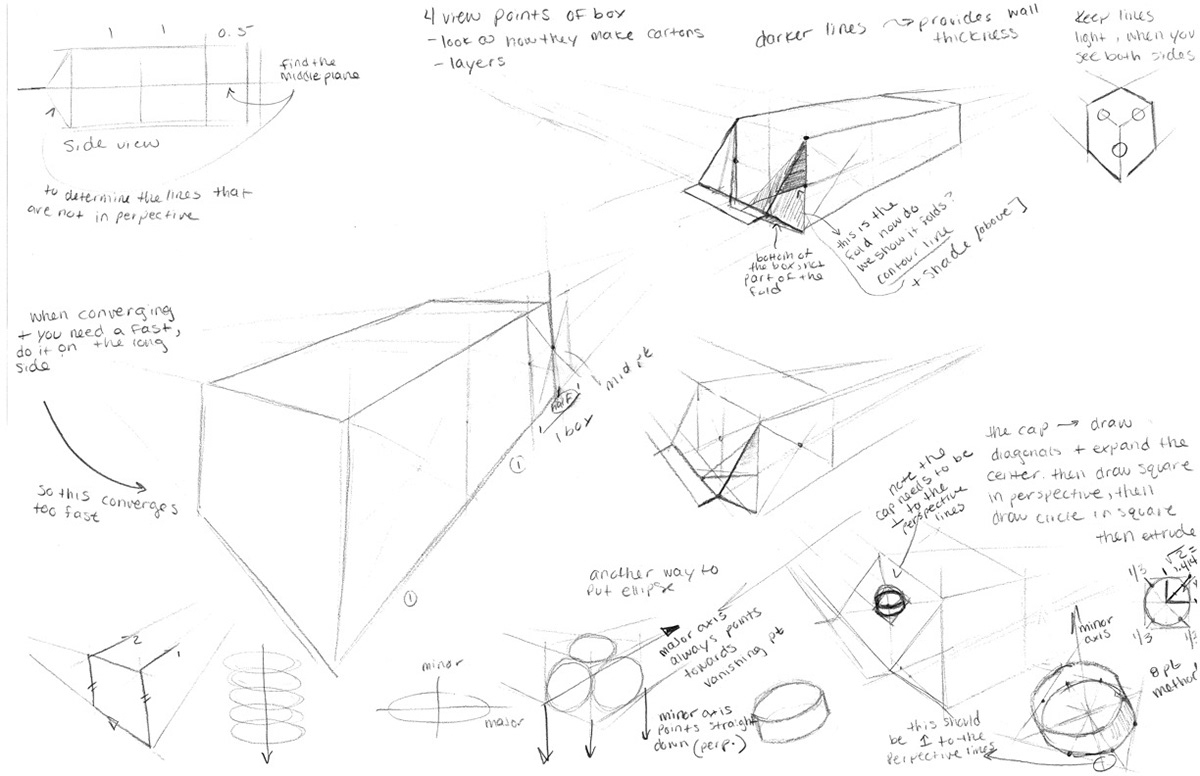 1 1 0.5
find the
middle plane
Side view
to determine the lines that
are not in perpective
4 view points of box
- look @ how they make cartons
- layers
darker lines → provides wall
thickness
Keep lines
light, when you
see both sides
this is the
fold how do
we show it folds?
contour line
+ shade [above]
bottom of
the box, not
part of the
fold
when converging
+ you need a fast,
do it on the long
side
so this converges
too fast
mid pt
half
1 box
1
1
note the
cap needs to be
⊥ to the
perspective
lines
the cap → draw
diagonals + expand the
center. then draw square
in perspective, then
draw circle in square
then extrude
another way to
put ellipse
major axis
always points
towards
vanishing pt
minor axis
points straight
down (perp.)
2
1
minor
major
minor
axis
1/3
√2
1.414
1
1/3
8 pt
method
this should
be ⊥ to the
perpective lines